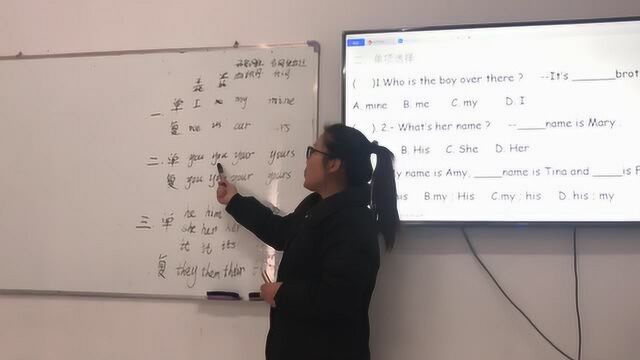 主 宾 形容词性 名词性
格 格 物主代词 代词
一 单 I me my mine
复 we us our
二. 单 you you your yours
复 you you your yours
三. 单 he him
she her her
it it its
复 they them their
二、单项选择
( )1 Who is the boy over there ? --It's ______brot
A. mine B. me C. my D. I
( ). 2.- What's her name ? --____name is Mary .
B. His C. She D. Her
y name is Amy. _____name is Tina and ____is F
is B. my ; His C.my ; his D. his ; my